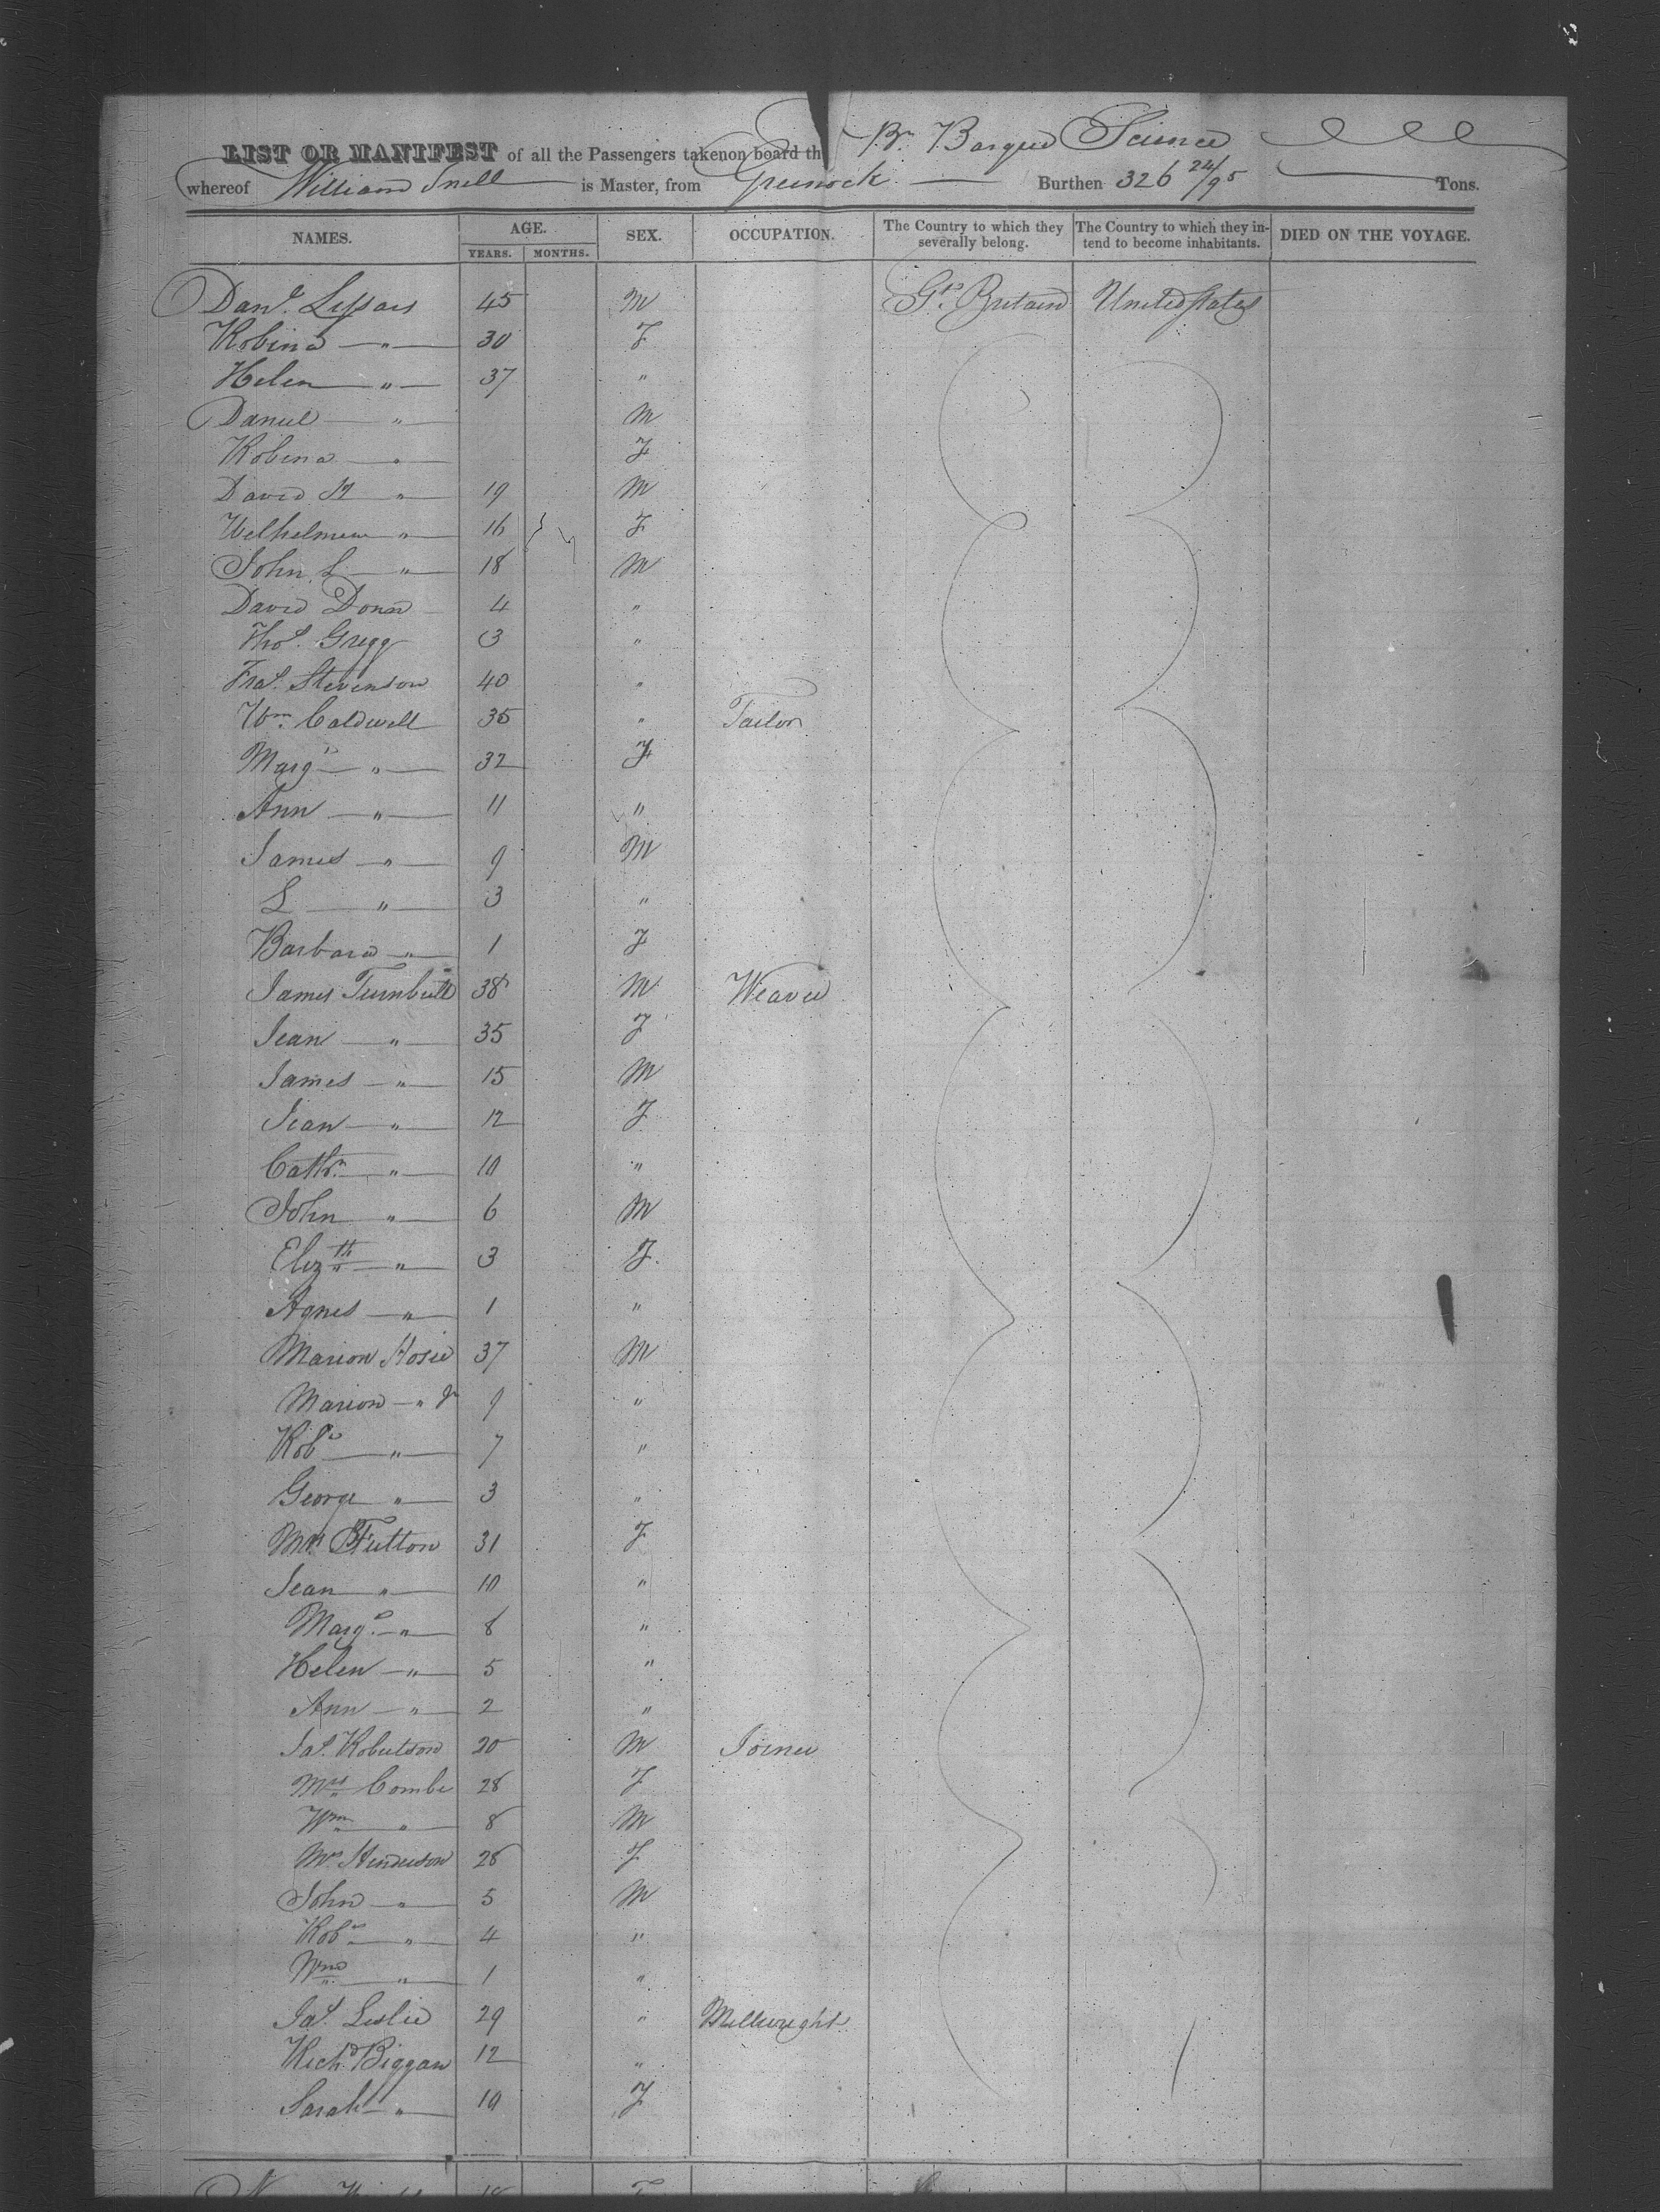 LIST OR MANIFEST of all the Passengers taken on board the Br. Barque Science
whereof William Snell is Master, from Greenock Burthen 326 24/95 Tons.
NAMES. AGE. SEX. OCCUPATION. The Country to which they severally belong. The Country to which they intend to become inhabitants. DIED ON THE VOYAGE.
YEARS. MONTHS.
Danl. 45 M Gt. Britain United States
Robina " 30 F
Helen " 37 "
Daniel " M
Robina " F
David " 19 M
" 16 F
John L " 18 M
David Donn 4 "
Thos. Gregg 3 "
Fras. Stevenson 40 "
Wm. Caldwell 35 " Tailor
Margt " 32 F
Ann " 11 "
James " 9 M
L " 3 "
Barbara " 1 F
James Turnbull 38 M Weaver
Jean " 35 F
James " 15 M
Jean " 12 F
Cathn " 10 "
John " 6 M
Elizth " 3 F.
Agnes " 1 "
Marion Hosie 37 M
Marion " Jr 9 "
Robt " 7 "
George " 3 "
Mrs Futton 31 F
Jean " 10 "
Margt. " 8 "
Helen " 5 "
Ann " 2 "
Jas. Robertson 20 M Joiner
Mrs Combe 28 F
Wm " 8 M
Mrs Henderson 28 F
John " 5 M
Robt " 4 "
Wm " 1 "
Jas. Leslie 29 " Millwright
Richd Biggan 12 "
Sarah " 10 F